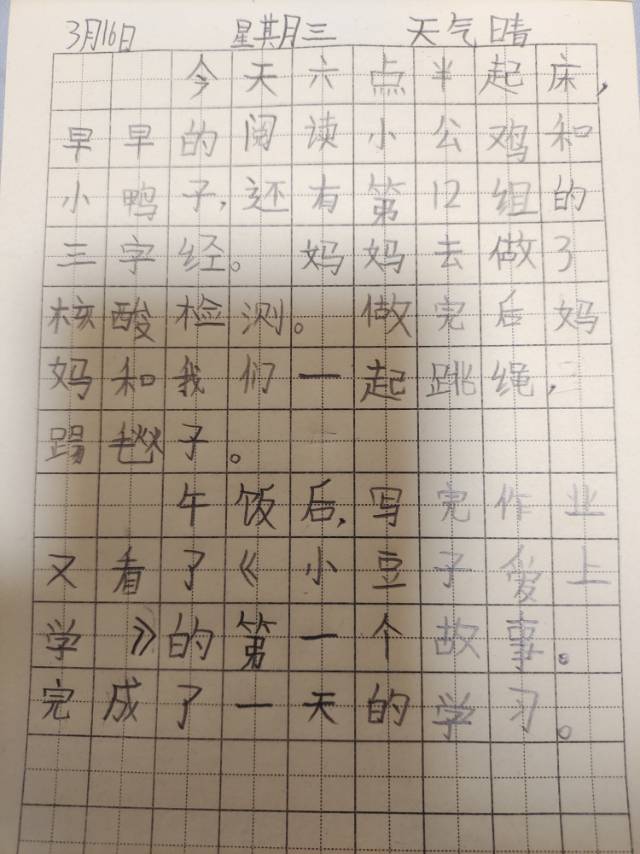 3月16日 星期月三 天气晴
今天六点半起床,
早早的阅读小公鸡和
小鸭子,还有第12组的
三字经。妈妈去做了
核酸检测。做完后妈
妈和我们一起跳绳,
踢毽子。
午饭后,写完作业
又看了《小豆子爱上
学》的第一个故事。
完成了一天的学习。